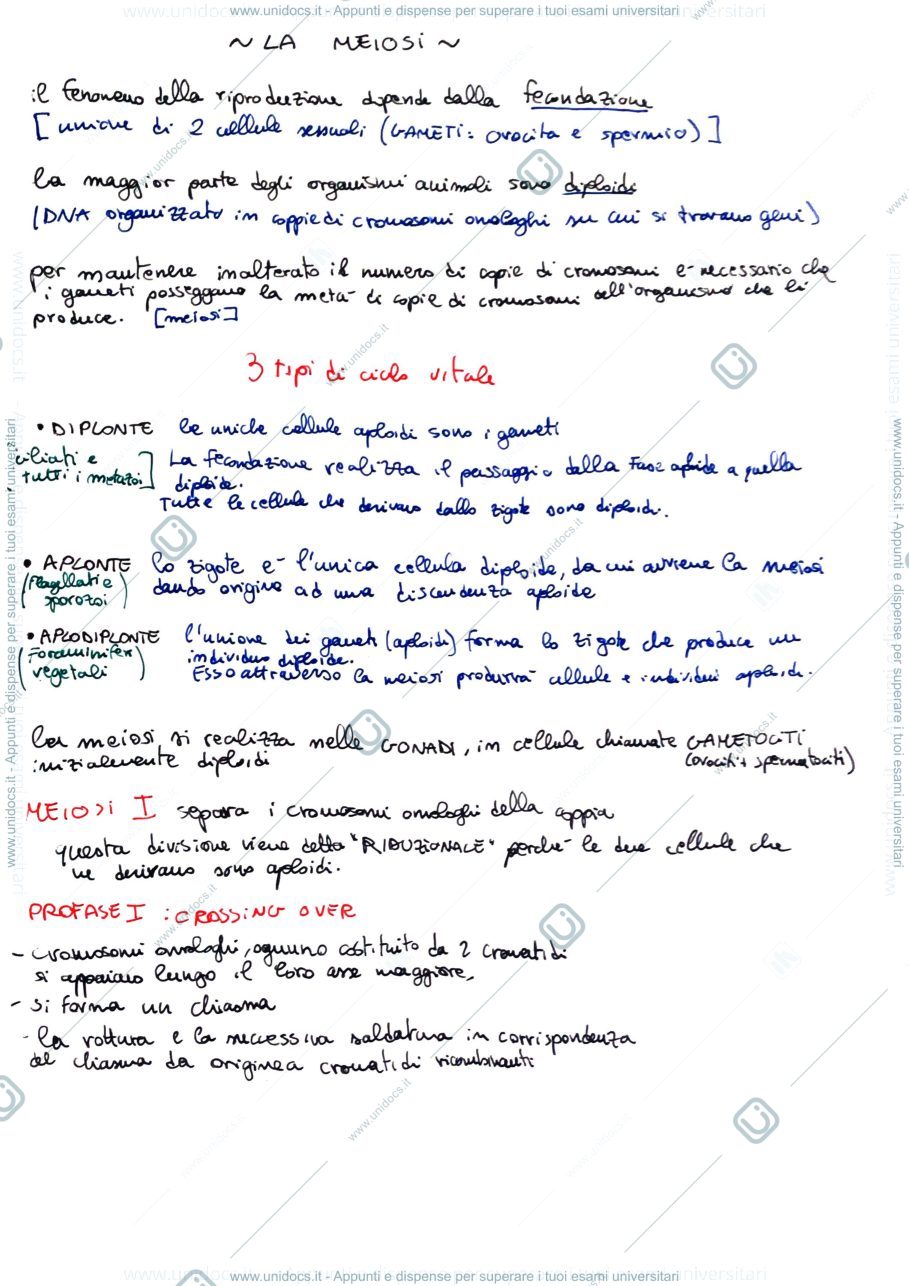 www.unidocs.it - Appunti e dispense per superare i tuoi esami universitari
~ LA MEIOSI ~
il fenomeno della riproduzione dipende dalla fecondazione
[unione di 2 cellule sessuali (GAMETI: ovocita e spermio)]
la maggior parte degli organismi animali sono diploidi
(DNA organizzato in coppie di cromosomi omologhi su cui si trovano geni)
per mantenere inalterato il numero di copie di cromosomi e' necessario che
i gameti posseggano la metà di copie di cromosomi dell'organismo che li
produce. [meiosi]
3 tipi di ciclo vitale
• DIPLONTE le uniche cellule aploidi sono i gameti
ciliati e
tutti i metazoi]
La fecondazione realizza il passaggio dalla fase aploide a quella
diploide.
Tutte le cellule che derivano dallo zigote sono diploidi.
• APLONTE lo zigote e' l'unica cellula diploide, da cui avviene la meiosi
(flagellati e
sporozoi)
dando origine ad una discendenza aploide
• APLODIPLONTE l'unione dei gameti (aploidi) forma lo zigote che produce un
(foraminiferi
vegetali)
individuo diploide.
Esso attraverso la meiosi produrrà cellule e individui aploidi.
la meiosi si realizza nelle GONADI, in cellule chiamate GAMETOCITI
inizialmente diploidi (ovociti e spermatociti)
MEIOSI I separa i cromosomi omologhi della coppia
questa divisione viene detta "RIDUZIONALE" perchè le due cellule che
ne derivano sono aploidi.
PROFASE I : CROSSING OVER
- cromosomi omologhi, ognuno costituito da 2 cromatidi
si appaiano lungo il loro asse maggiore,
- si forma un chiasma
- la rottura e la successiva saldatura in corrispondenza
del chiasma da origine a cromatidi ricombinanti
www.unidocs.it - Appunti e dispense per superare i tuoi esami universitari